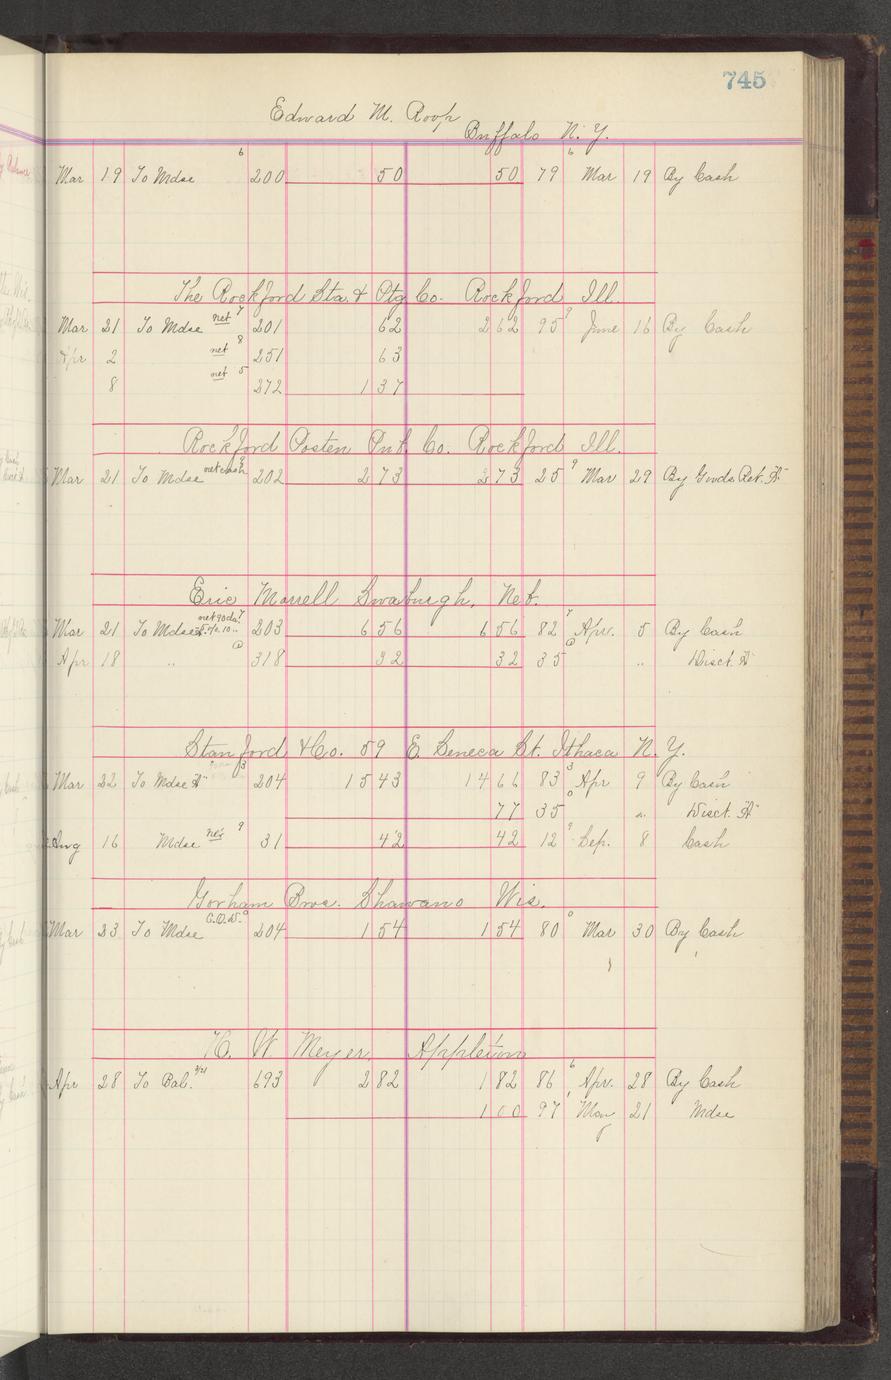 745
Edward M. Roop
Buffalo N. Y.
Mar 19 To Mdse 6 200 50 50 79 6 Mar 19 By Cash
The Rockford Sta. & Ptg Co. Rockford Ill.
Mar 21 To Mdse net 7 201 62 262 95 9 June 16 By Cash
Apr 2 net 8 251 63
8 net 5 272 137
Rockford Posten Pnt. Co. Rockford Ill.
Mar 21 To Mdse net cash 202 273 273 25 9 Mar 29 By Goods Ret.
Eric Morrell Swaburgh, Neb.
Mar 21 To Mdse net 90 da. 7 203 656 656 82 7 Apr. 5 By Cash
Apr 18 " 318 32 32 35 " Disct.
Stanford & Co. 59 E. Seneca St. Ithaca N. Y.
Mar 22 To Mdse 3 204 1543 1466 83 3 Apr 9 By Cash
77 35 0 " Disct.
Aug 16 Mdse net 9 31 42 42 12 9 Sep. 8 Cash
Gorham Bros. Shawano Wis.
Mar 23 To Mdse C.O.D. 0 204 154 154 80 0 Mar 30 By Cash
H. W. Meyer, Appleton
Apr 28 To Bal. 693 282 182 86 6 Apr. 28 By Cash
100 97 1 May 21 Mdse